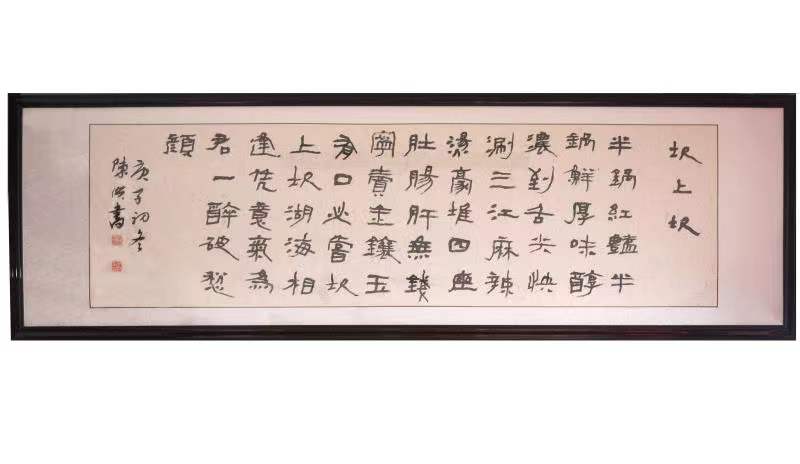 坎上坎
半鍋紅豔半
鍋鮮厚味醇
濃到舌尖快
涮三江麻辣
燙豪堆四座
肚腸肝無錢
寧賣金鑲玉
有口必嘗坎
上坎湖海相
逢凭意氣為
君一醉破愁
顏
庚子初冬
陳書